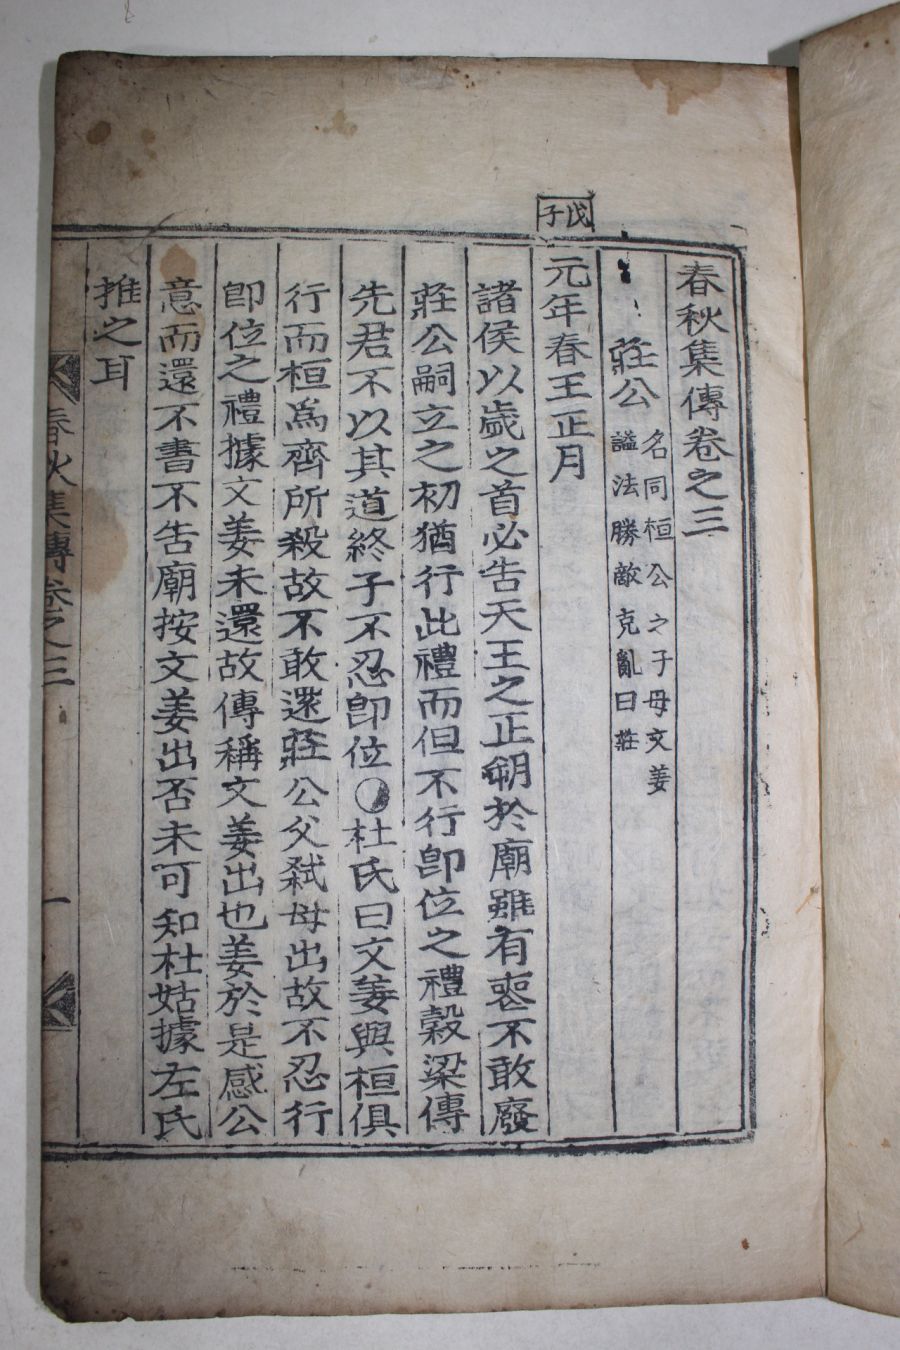 戊子
春秋集傳卷之三
莊公 名同桓公之子母文姜
謚法勝敵克亂曰莊
元年春王正月
諸侯以歲之首必告天王之正朔於廟雖有喪不敢廢
莊公嗣立之初猶行此禮而但不行卽位之禮穀梁傳
先君不以其道終子不忍卽位○杜氏曰文姜與桓俱
行而桓爲齊所殺故不敢還莊公父弑母出故不忍行
卽位之禮據文姜未還故傳稱文姜出也姜於是感公
意而還不書不告廟按文姜出否未可知杜姑據左氏
推之耳
春秋集傳卷之三 一